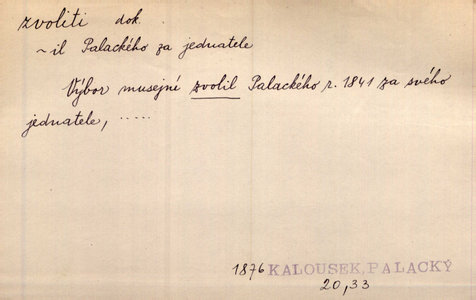 zvoliti dok.
~il Palackého za jednatele
Výbor musejné zvolil Palackého r. 1841 za svého
jednatele, .....
1876 KALOUSEK, PALACKÝ
20,33